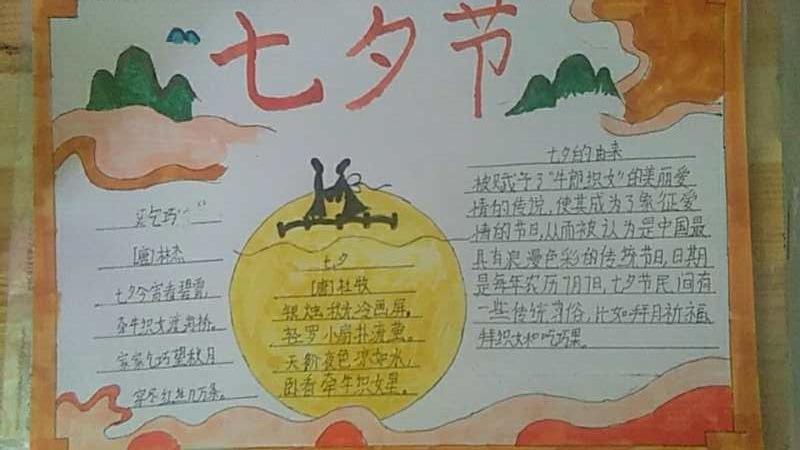 七夕节
乞巧
[唐]林杰
七夕今宵看碧霄，
牵牛织女渡河桥。
家家乞巧望秋月
穿尽红丝几万条。
七夕
[唐]杜牧
银烛秋光冷画屏。
轻罗小扇扑流萤。
天阶夜色凉如水，
卧看牵牛织女星。
七夕的由来
被赋予了“牛郎织女”的美丽爱
情的传说，使其成为了象征爱
情的节日，从而被认为是中国最
具有浪漫色彩的传统节日，日期
是每年农历7月7日，七夕节民间有
一些传统习俗，比如拜月祈福
拜织女和吃巧果。